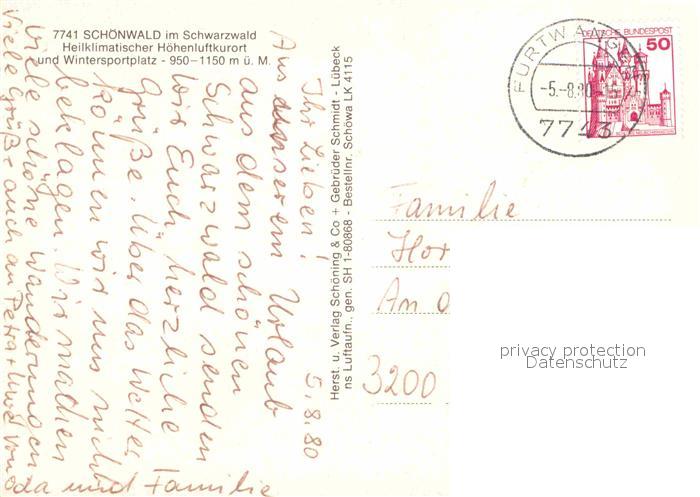 7741 SCHÖNWALD im Schwarzwald
Heilklimatischer Höhenluftkurort
und Wintersportplatz - 950-1150 m ü. M.
Ihr Lieben! 5.8.80
Aus unserem Urlaub
aus dem schönen
Schwarzwald senden
wir Euch herzliche
Grüße. Über das Wetter
können wir uns nicht
beklagen. Wir machen
viele schöne Wanderungen
Viele Grüße auch an Petra + Uwe von
da und Familie
Herst. u. Verlag Schöning & Co + Gebrüder Schmidt - Lübeck
ns Luftaufn., gen. SH 1-80868 - Bestellnr. Schöwa LK 4115
FURTWANG
-5.-8.80
7743
DEUTSCHE BUNDESPOST
50
Familie
Hor
An
3200
privacy protection
Datenschutz